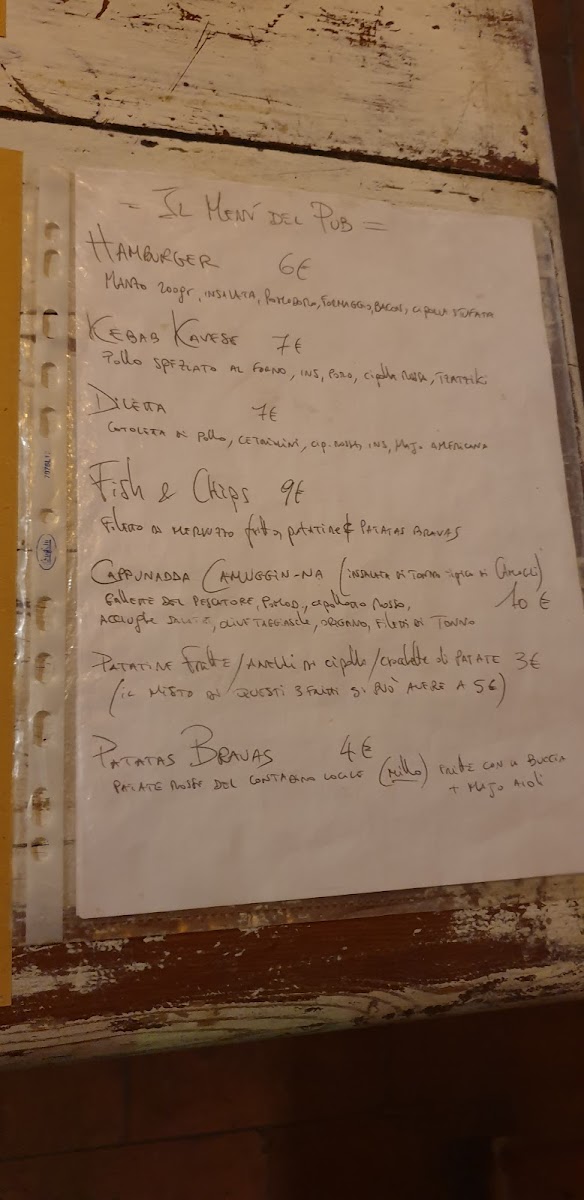 = IL MENÚ DEL PUB =
HAMBURGER 6€
MANZO 200gr, INSALATA, POMODORO, FORMAGGIO, BACON, CIPOLLA STUFATA
KEBAB KAVESE 7€
POLLO SPEZIATO AL FORNO, INS, POMO, CIPOLLA ROSSA, TZATZIKI
DILETTA 7€
COTOLETTA DI POLLO, CETRIOLINI, CIP. ROSSA, INS, MAJO AMERICANA
FISH & CHIPS 9€
FILETTO DI MERLUZZO fritto, PATATINE PATATAS BRAVAS
CAPPUNADDA CAMUGGIN-NA (INSALATA DI TONNO TIPICA DI
GALLETTE DEL PESCATORE, POMOD., CIPOLLOTTO ROSSO, 10 €
ACCIUGHE SALATE, OLIVE TAGGIASCHE, ORIGANO, FILETTI DI TONNO
PATATINE fritte / ANELLI DI CIPOLLA / CROCCHETTE DI PATATE 3€
(IL MISTO DI QUESTI 3 FRITTI SI PUÒ AVERE A 5€)
PATATAS BRAVAS 4€
PATATE ROSSE DEL CONTADINO LOCALE (Millo) FRITTE CON LA BUCCIA
+ MAJO AIOLI